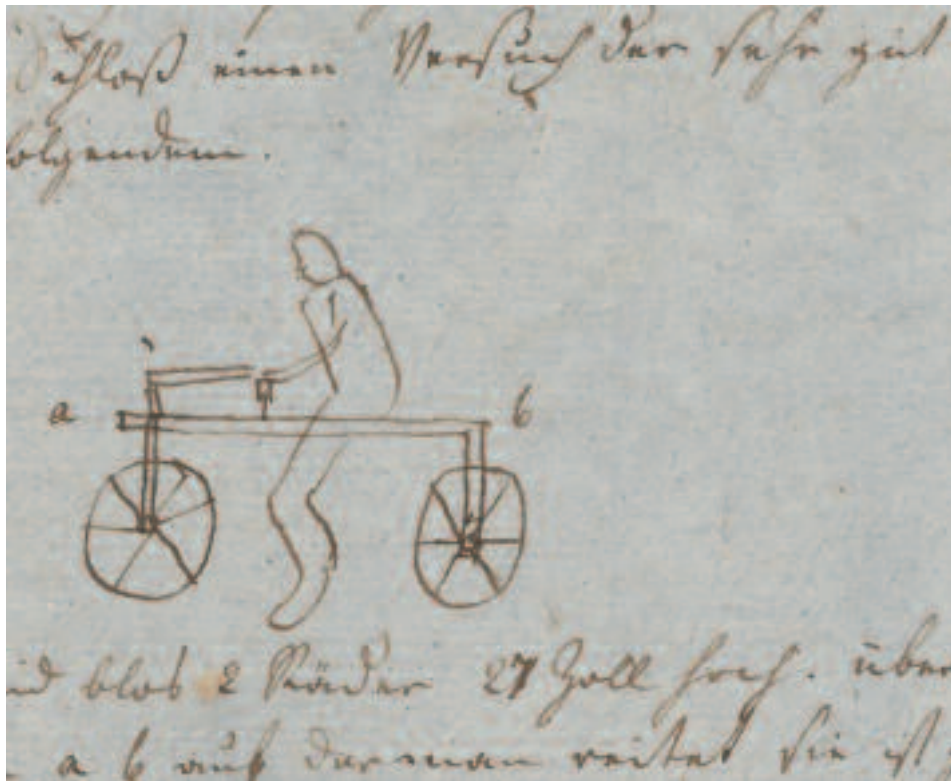 Schloß einen Versuch der sehr gut
folgendem.
a
b
id blos 2 Räder 27 Zoll hoch. über
a b auf der man reitet sie ist